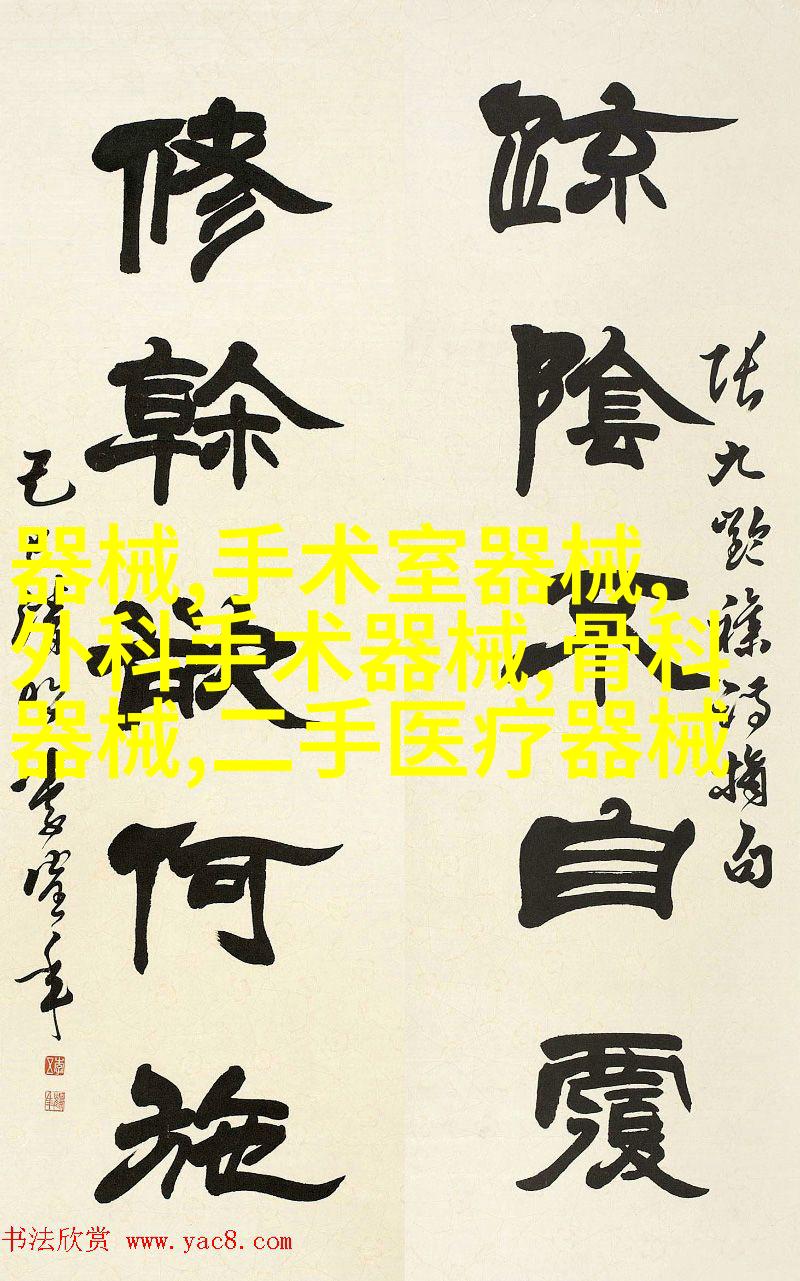 疎陰不自覆
張九齡雜詩摘句
修榦欲何施
器械,手术室器械,
外科手术器械,骨科
器械,二手医疗器械
书法欣赏 www.yac8.com